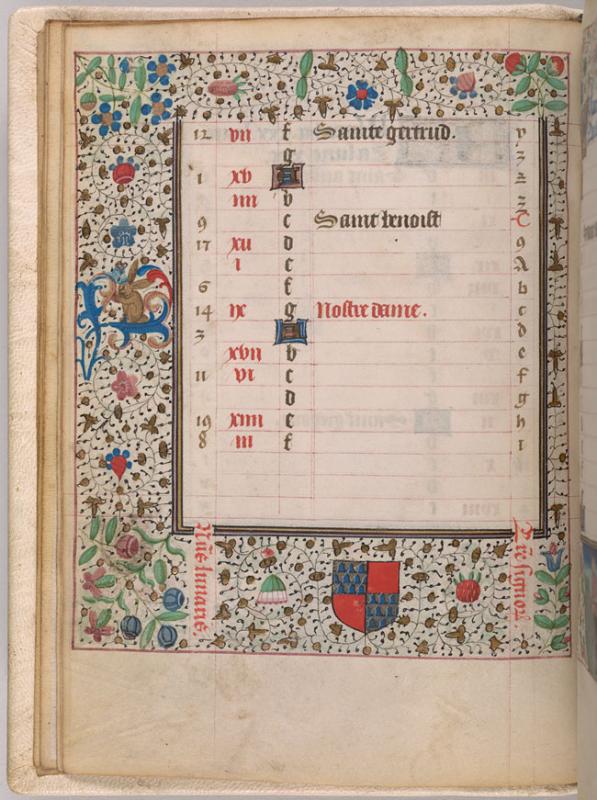 12 vii f Sainte gertrud. y
g z
1 xv A
iiii b
9 c Saint benoist
17 xii d 9
i e A
6 f b
14 ix g Nostre dame. c
3 A d
xvii b e
11 vi c f
d g
19 xiiii e h
8 iii f i
lunaris.